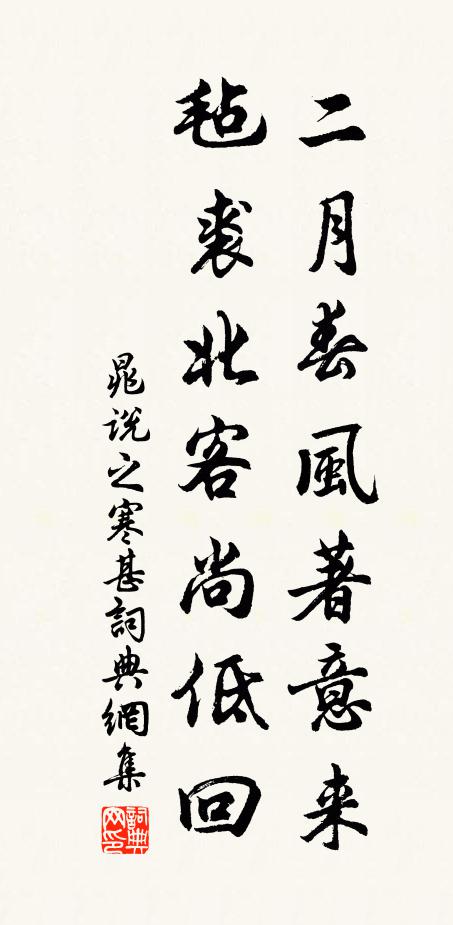 二月春風著意来
毡裘北客尚低回
晁说之寒甚詞典網集
詞典网印